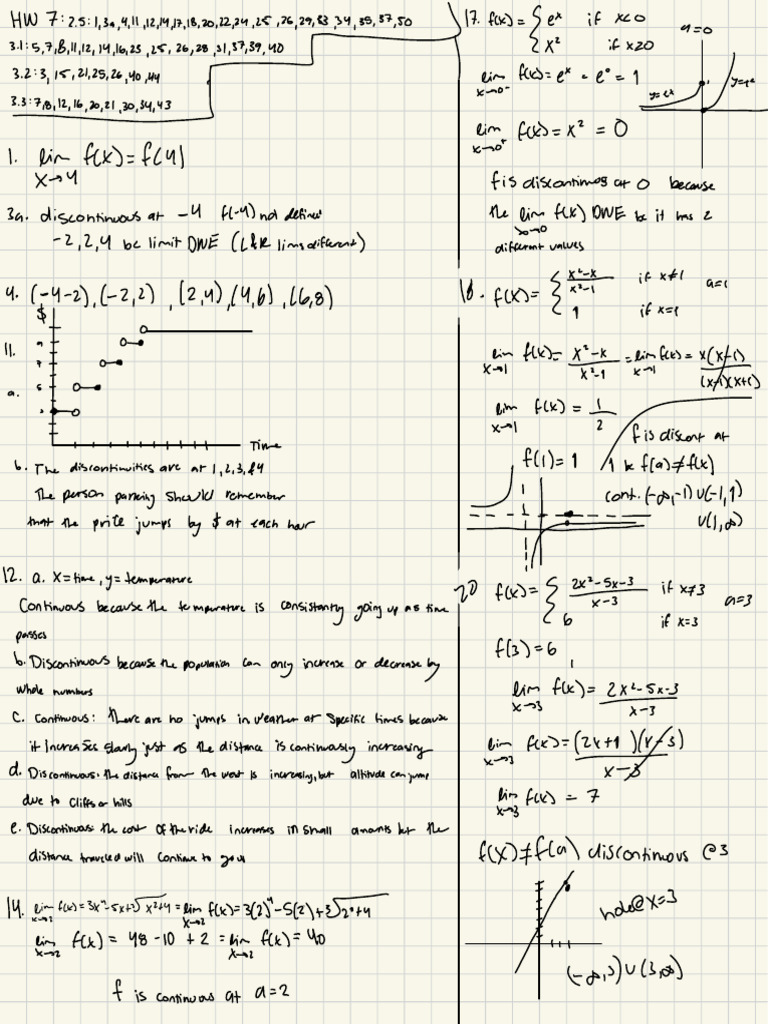 HW 7: 2.5: 1, 3a, 4, 11, 12, 14, 17, 18, 20, 22, 24, 25, 26, 29, 33, 34, 35, 37, 50
3.1: 5, 7, 8, 11, 12, 14, 16, 23, 25, 26, 28, 31, 37, 39, 40
3.2: 3, 15, 21, 25, 26, 40, 44
3.3: 7, 8, 12, 16, 20, 21, 30, 34, 43
1. lim f(x) = f(4)
x→4
3a. discontinuous at -4 f(-4) not defined
-2, 2, 4 bc limit DNE (L&R lims different)
4. (-4 -2), (-2, 2), [2, 4), (4, 6), (6, 8)
$
11.
a.
Time
b. The discontinuities are at 1, 2, 3, & 4
The person parking should remember
that the price jumps by $ at each hour
12. a. x = time, y = temperature
Continuous because the temperature is consistantly going up as time
passes
b. Discontinuous because the population can only increase or decrease by
whole numbers
c. Continuous: there are no jumps in weather at specific times because
it increases slowly just as the distance is continuously increasing
d. Discontinuous: the distance from the west is increasing, but altitude can jump
due to cliffs or hills
e. Discontinuous: the cost of the ride increases in small amounts but the
distance traveled will continue to
14. lim f(x) = 3x⁴ - 5x + 3√x²+4 = lim f(x) = 3(2)⁴ - 5(2) + 3√2²+4
x→2 x→2
lim f(x) = 48 - 10 + 2 = lim f(x) = 40
x→2 x→2
f is continuous at a = 2
17. f(x) = { eˣ if x<0 a = 0
x² if x≥0
lim f(x) = eˣ = e⁰ = 1
x→0⁻
y=eˣ y=x²
lim f(x) = x² = 0
x→0⁺
f is discontinuos at 0 because
the lim f(x) DNE bc it has 2
x→0
different values
18. f(x) = { x²-x / x²-1 if x≠1 a=1
1 if x=1
lim f(x) = x²-x / x²-1 = lim f(x) = x(x-1) / (x-1)(x+1)
x→1 x→1
lim f(x) = 1/2
x→1
f is discont at
f(1) = 1
1 bc f(a) ≠ f(x)
cont. (-∞, -1) ∪ (-1, 1)
∪ (1, ∞)
20 f(x) = { 2x²-5x-3 / x-3 if x≠3 a=3
6 if x=3
f(3) = 6
lim f(x) = 2x²-5x-3 / x-3
x→3
lim f(x) = (2x+1)(x-3) / x-3
x→3
lim f(x) = 7
x→3
f(x) ≠ f(a) discontinuous @ 3
hole @ x=3
(-∞, 3) ∪ (3, ∞)